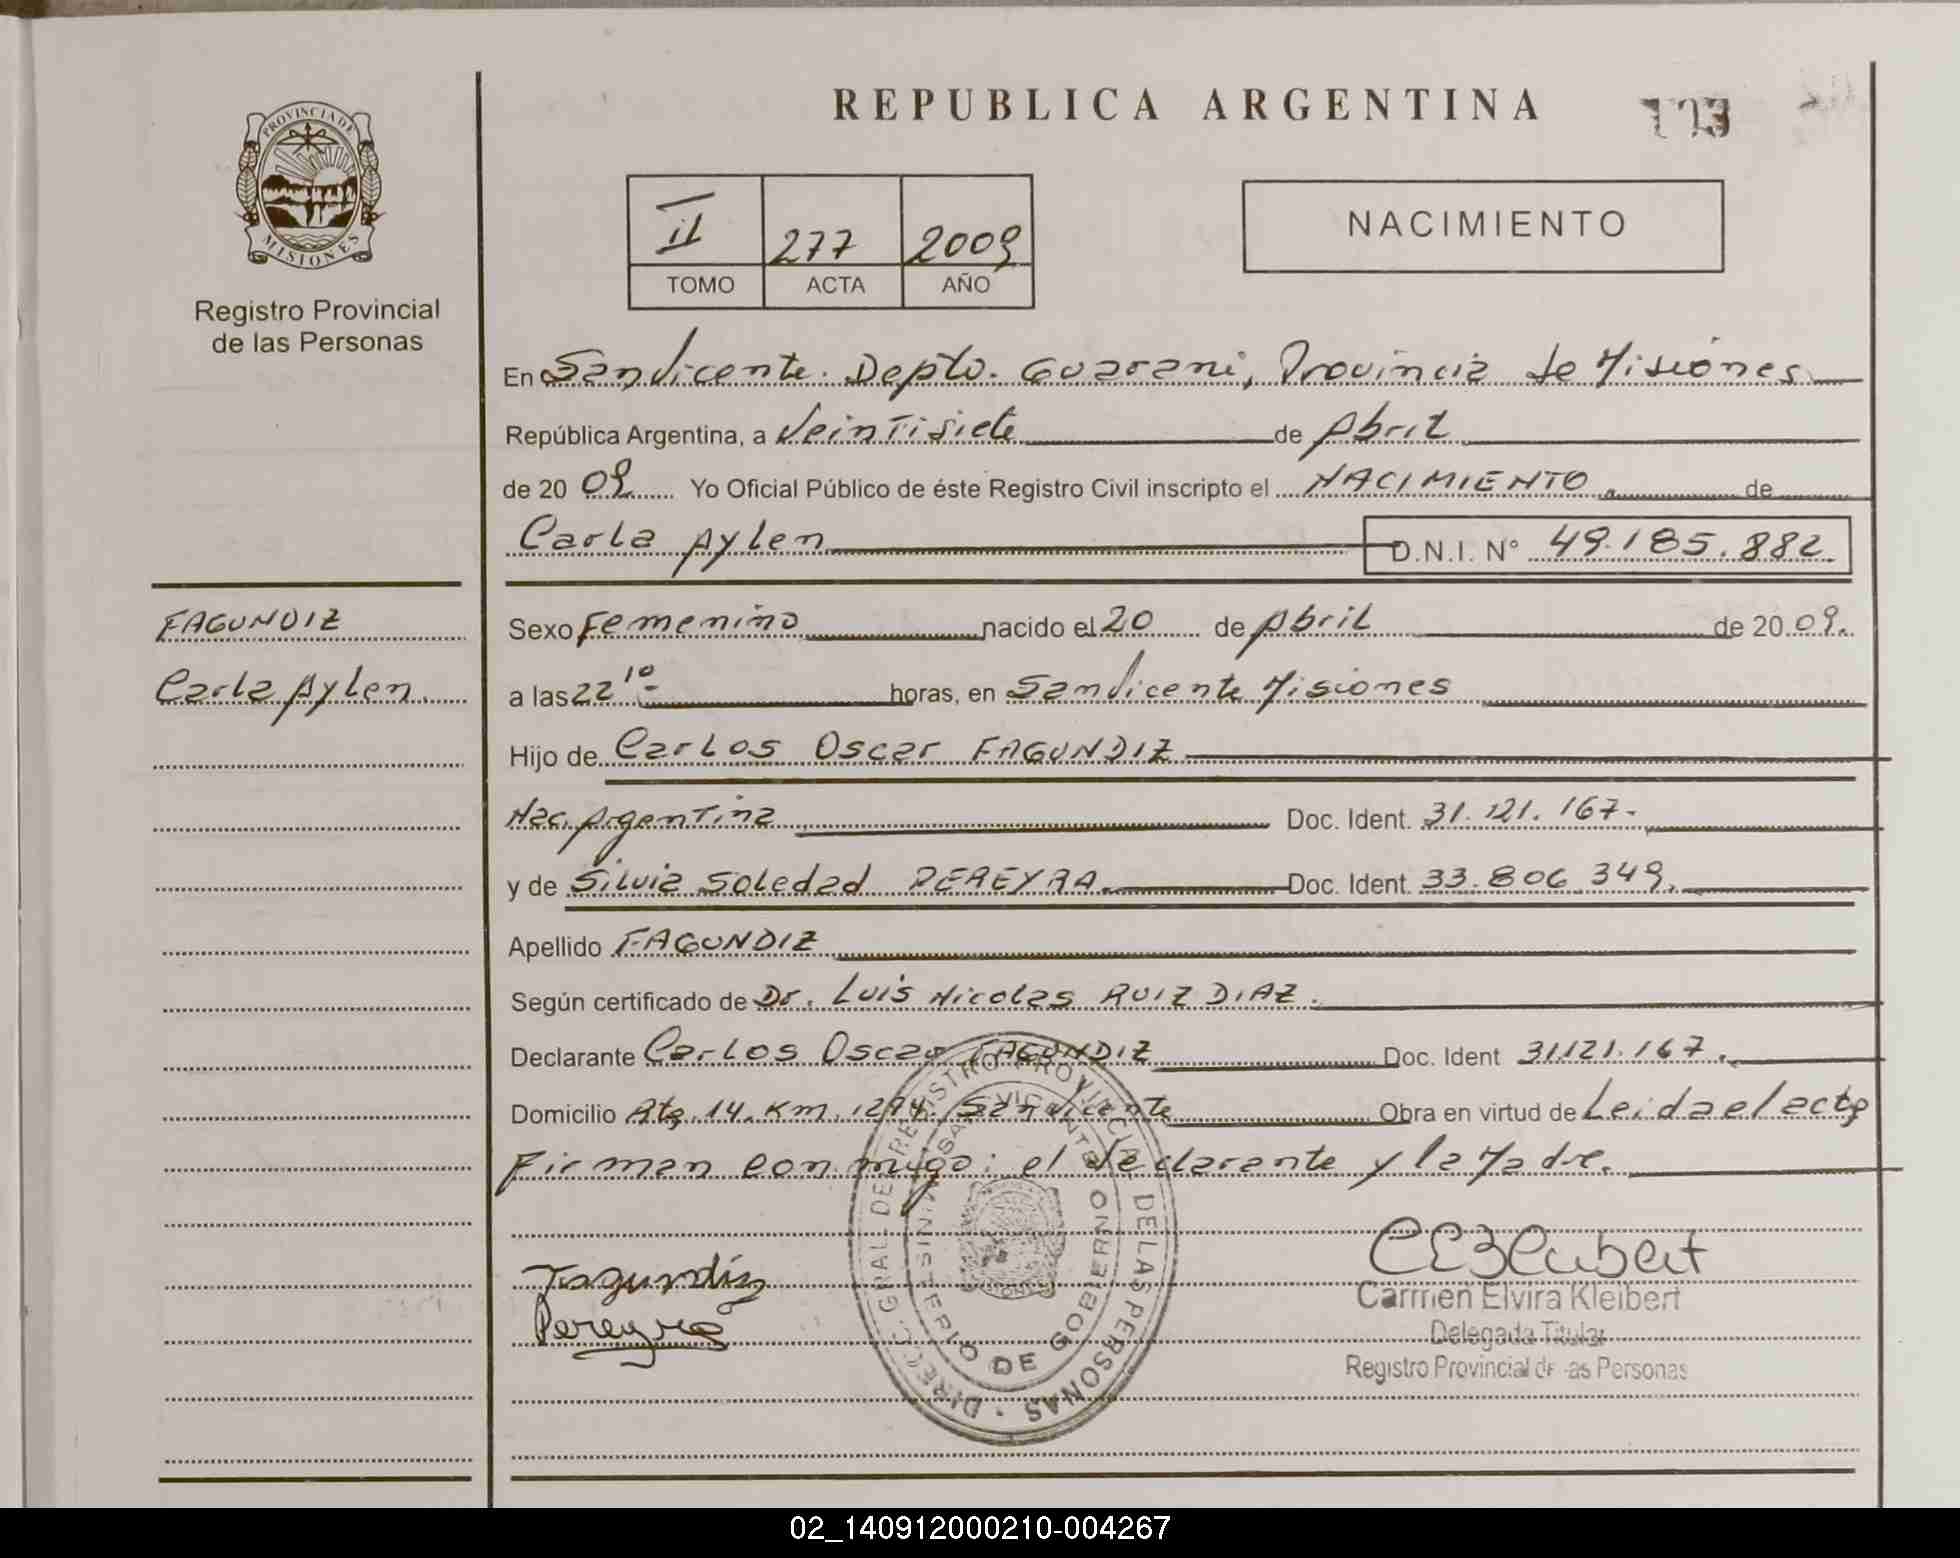 REPUBLICA ARGENTINA
PROVINCIA DE
MISIONES
Registro Provincial
de las Personas
II 277 2009
TOMO ACTA AÑO
NACIMIENTO
En San Vicente. Depto. Guarani, Provincia de Misiones
República Argentina, a Veintisiete de Abril
de 20 09 Yo Oficial Público de éste Registro Civil inscripto el NACIMIENTO de
Carla Aylen D.N.I. N° 49.185.882
FAGUNDIZ
Carla Aylen.
Sexo Femenino nacido el 20 de Abril de 20 09.
a las 22 10 horas, en San Vicente Misiones
Hijo de Carlos Oscar FAGUNDIZ
Nac. Argentina Doc. Ident. 31.121.167-
y de Silvia Soledad PEREYRA. Doc. Ident. 33.806.349.
Apellido FAGUNDIZ
Según certificado de Dr. Luis Nicolas RUIZ DIAZ.
Declarante Carlos Oscar FAGUNDIZ Doc. Ident 31.121.167.
Domicilio Rta. 14. Km. 1294. San Vicente Obra en virtud de Leida el acta
Firman conmigo: el declarante y la Madre.
Fagundiz
Pereyra
DIRECC. GRAL. DE REGISTRO PROVINCIAL DE LAS PERSONAS
MINISTERIO DE GOBIERNO
SAN VICENTE
Carmen Elvira Kleibert
Delegada Titular
Registro Provincial de las Personas
02_140912000210-004267